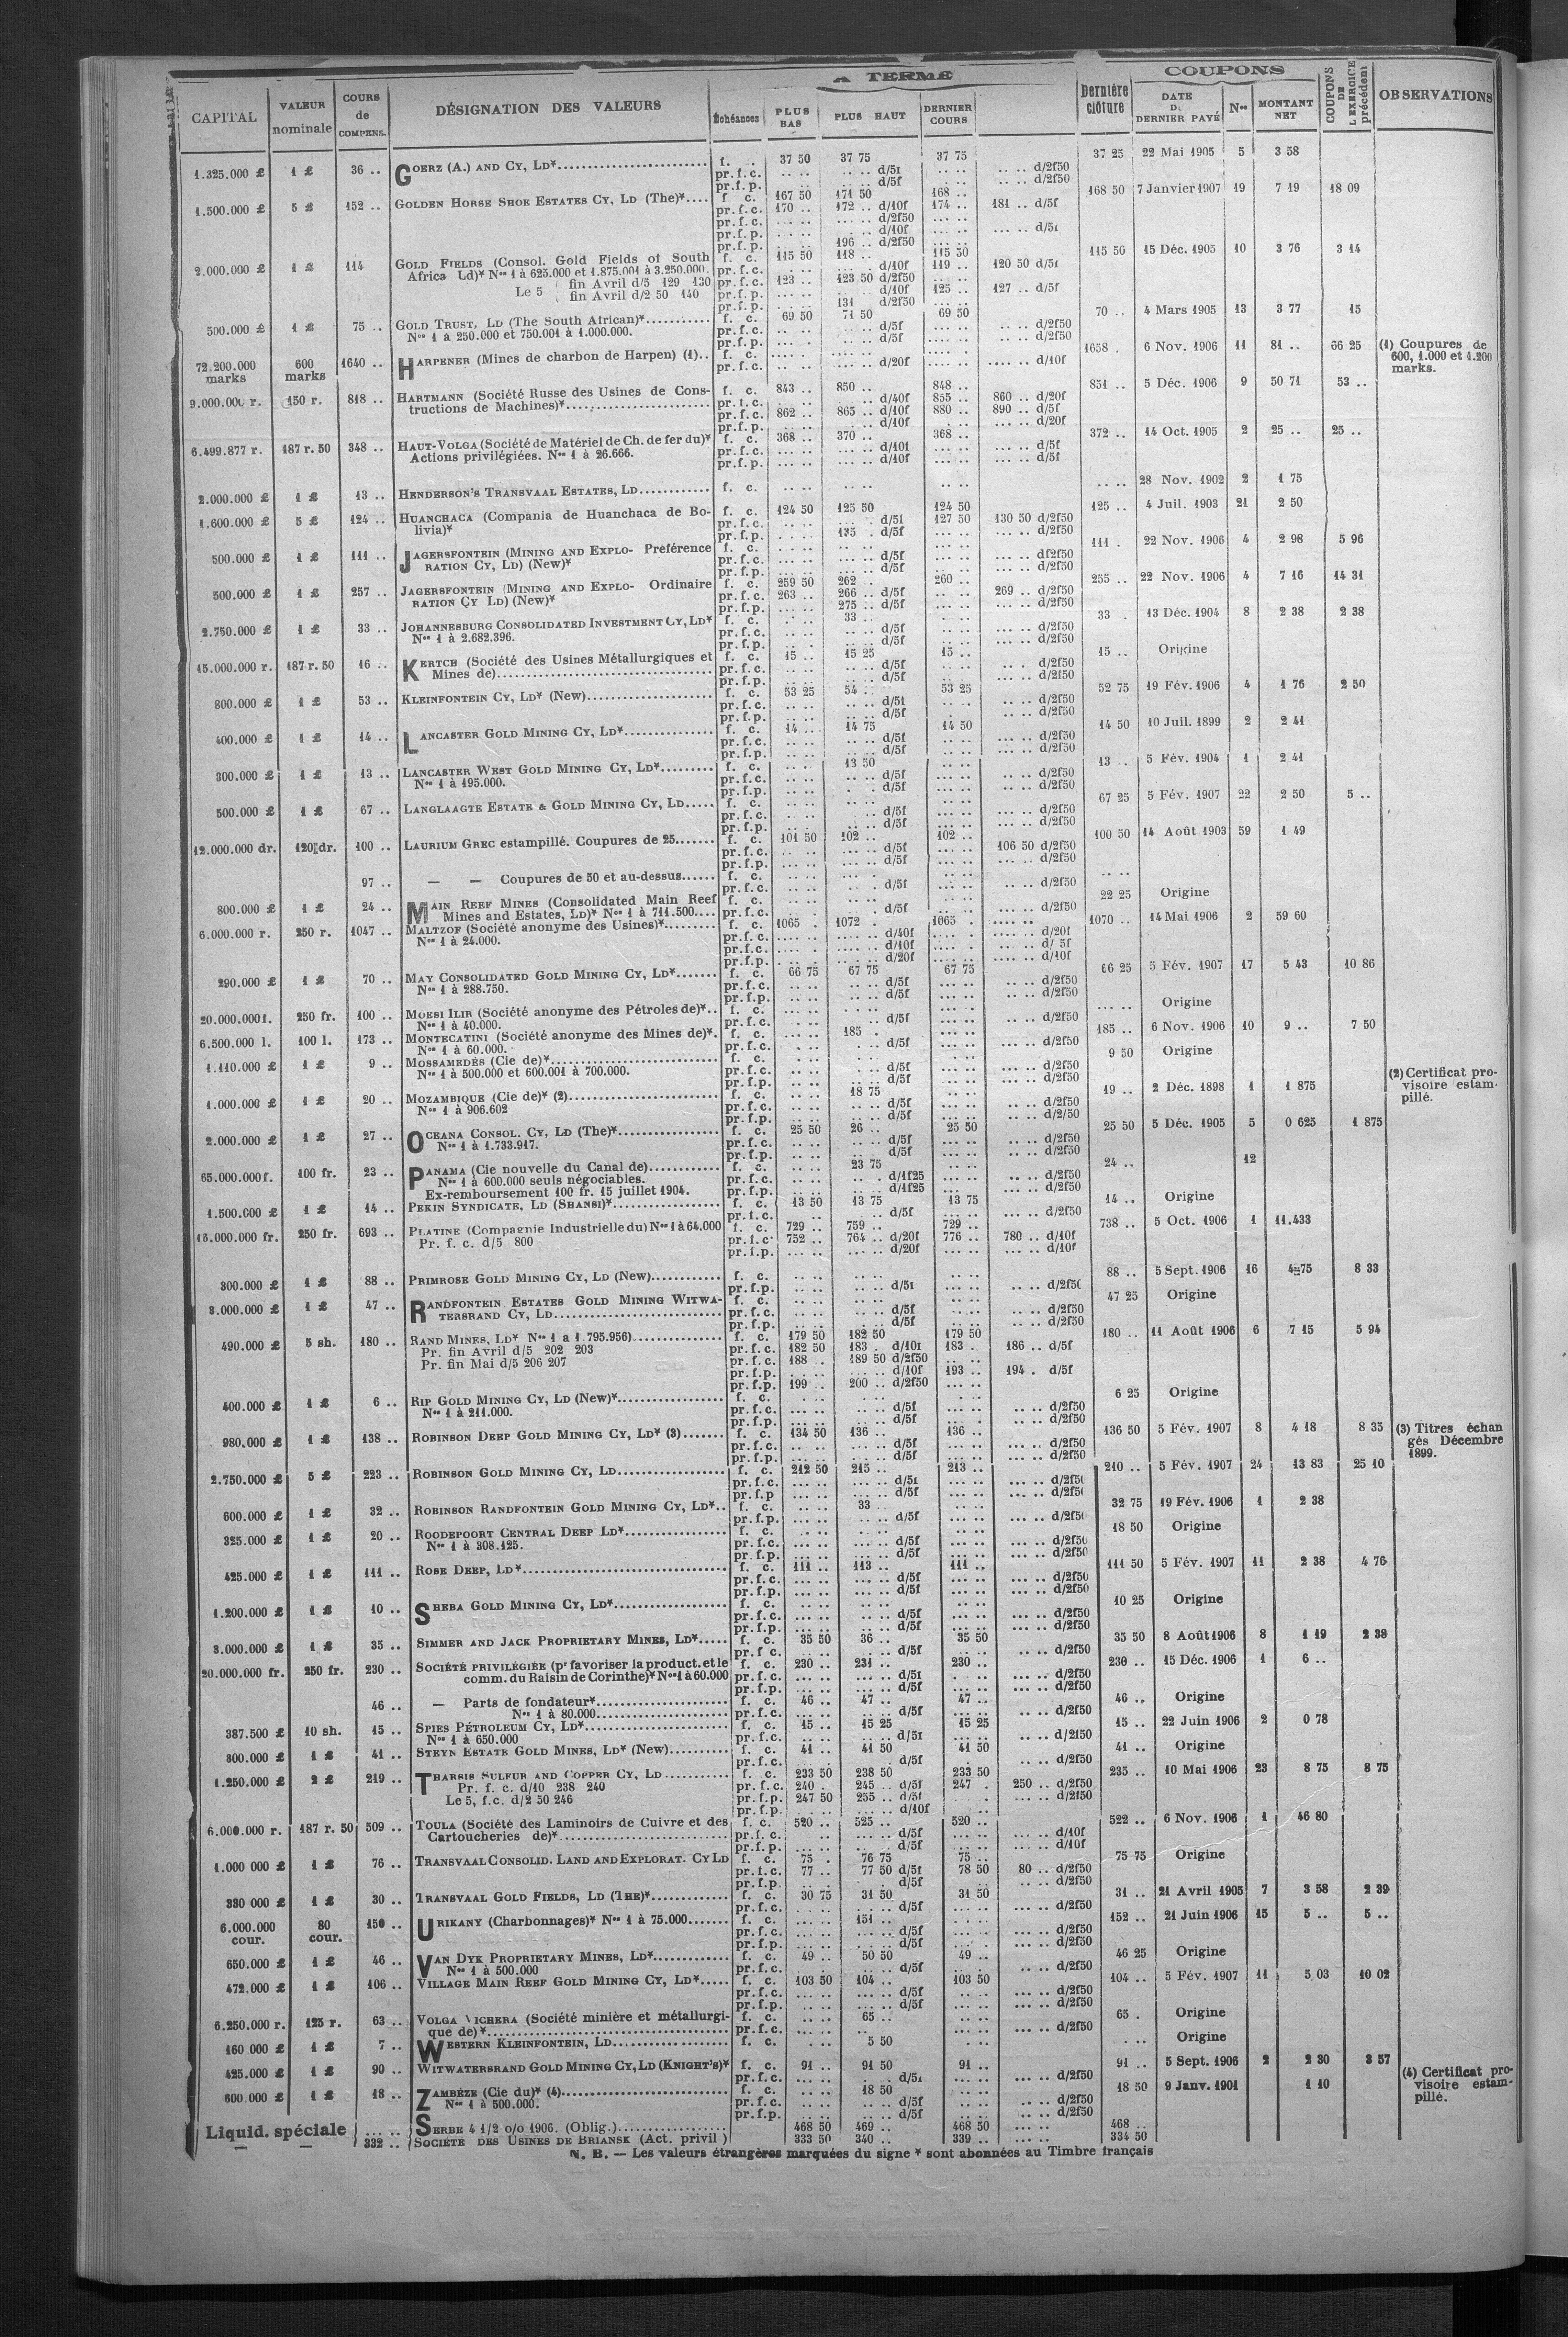 A TERME
COUPONS
CAPITAL VALEUR nominale COURS de COMPENS. DÉSIGNATION DES VALEURS Échéances PLUS BAS PLUS HAUT DERNIER COURS Dernière clôture DATE DU DERNIER PAYÉ Nos MONTANT NET COUPONS DE L'EXERCICE précédent OBSERVATIONS
1.325.000 £ 1 £ 36 .. GOERZ (A.) AND CY, LD* f. 37 50 37 75 37 75 37 25 22 Mai 1905 5 3 58
pr.f.c. .. .. .. .. .. .. .. .. d/2f50
pr.f.p. .. .. .. .. d/5f .. .. .. .. d/2f50
1.500.000 £ 5 £ 152 .. GOLDEN HORSE SHOE ESTATES CY, LD (The)* f. c. 167 50 171 50 168 .. 168 50 7 Janvier 1907 19 7 19 18 09
pr.f.c. 170 .. 172 .. d/10f 174 .. 181 .. d/5f
pr.f.c. d/2f50
pr.f.p. d/10f
pr.f.p. 196 .. d/2f50
2.000.000 £ 1 £ 114 GOLD FIELDS (Consol. Gold Fields of South f. c. 115 50 118 .. 115 50 115 50 15 Déc. 1905 10 3 76 3 14
Africa Ld)* Nos 1 à 625.000 et 1.875.001 à 3.250.000. pr.f.c. d/10f 119 .. 120 50
Le 5 fin Avril d/5 129 130 pr.f.c. 123 .. 123 50 d/2f50
fin Avril d/2 50 140 pr.f.p. d/10f 125 .. 127 .. d/5f
pr.f.p. 131 d/2f50
500.000 £ 1 £ 75 .. GOLD TRUST, LD (The South African)* f. c. 69 50 71 50 69 50 70 .. 4 Mars 1905 13 3 77 15
Nos 1 à 250.000 et 750.001 à 1.000.000. pr.f.c. d/5f d/2f50
pr.f.p. d/5f d/2f50
72.200.000 marks 600 marks 1640 .. HARPENER (Mines de charbon de Harpen) (1).. f. c. 1658 . 6 Nov. 1906 11 81 .. 66 25 (1) Coupures de 600, 1.000 et 1.200 marks.
pr.f.c. d/20f d/10f
9.000.000 r. 150 r. 818 .. HARTMANN (Société Russe des Usines de Cons- f. c. 843 .. 850 .. 848 .. 851 .. 5 Déc. 1906 9 50 71 53 ..
tructions de Machines)* d/40f 855 .. 860 .. d/20f
pr.f.c. 862 .. 865 .. d/10f 880 .. 890 .. d/5f
pr.f.p. d/10f d/20f
6.499.877 r. 187 r. 50 348 .. HAUT-VOLGA (Société de Matériel de Ch. de fer du)* f. c. 368 .. 370 .. 368 .. 372 .. 14 Oct. 1905 2 25 .. 25 ..
Actions privilégiées. Nos 1 à 26.666. pr.f.c. d/5f
pr.f.p. d/10f d/5f
2.000.000 £ 1 £ 13 .. HENDERSON'S TRANSVAAL ESTATES, LD f. c. 28 Nov. 1902 2 1 75
1.600.000 £ 5 £ 124 .. HUANCHACA (Compania de Huanchaca de Bo- f. c. 124 50 125 50 124 50 125 .. 4 Juil. 1903 21 2 50
livia)* pr.f.c. 127 50 130 50 d/2f50
pr.f.p. 135 . d/5f d/2f50
500.000 £ 1 £ 111 .. JAGERSFONTEIN (MINING AND EXPLO- Préférence f. c. 111 . 22 Nov. 1906 4 2 98 5 96
RATION CY, LD) (New)* pr.f.c. d/5f
pr.f.p. d/5f d/2f50
500.000 £ 1 £ 257 .. JAGERSFONTEIN (MINING AND EXPLO- Ordinaire f. c. 259 50 262 .. 260 .. 255 .. 22 Nov. 1906 4 7 16 14 31
RATION CY LD) (New)* pr.f.c. 263 .. 266 .. d/5f 269 .. d/2f50
pr.f.p. 275 .. d/5f d/2f50
2.750.000 £ 1 £ 33 .. JOHANNESBURG CONSOLIDATED INVESTMENT CY, LD* f. c. 33 .. 33 . 13 Déc. 1904 8 2 38 2 38
Nos 1 à 2.682.396. pr.f.c. d/5f d/2f50
pr.f.p. d/5f d/2f50
15.000.000 r. 187 r. 50 16 .. KERTCH (Société des Usines Métallurgiques et f. c. 15 .. 15 25 15 .. 15 .. Origine
Mines de) pr.f.c. d/5f d/2f50
pr.f.p. d/5f d/2f50
800.000 £ 1 £ 53 .. KLEINFONTEIN CY, LD* (New) f. c. 53 25 54 .. 53 25 52 75 19 Fév. 1906 4 1 76 2 50
pr.f.c. d/2f50
pr.f.p. d/5f d/2f50
400.000 £ 1 £ 14 .. LANCASTER GOLD MINING CY, LD* f. c. 14 .. 14 75 14 50 14 50 10 Juil. 1899 2 2 41
pr.f.c. d/5f d/2f50
pr.f.p. d/5f d/2f50
300.000 £ 1 £ 13 .. LANCASTER WEST GOLD MINING CY, LD* f. c. 13 50 13 .. 5 Fév. 1904 1 2 41
Nos 1 à 195.000. pr.f.c. d/5f d/2f50
pr.f.p. d/5f d/2f50
500.000 £ 1 £ 67 .. LANGLAAGTE ESTATE & GOLD MINING CY, LD f. c. 67 25 5 Fév. 1907 22 2 50 5 ..
pr.f.c. d/5f d/2f50
pr.f.p. d/5f d/2f50
12.000.000 dr. 120 dr. 100 .. LAURIUM GREC estampillé. Coupures de 25 f. c. 101 50 102 .. 102 .. 100 50 14 Août 1903 59 1 49
pr.f.c. d/5f 106 50 d/2f50
pr.f.p. d/5f d/2f50
97 .. — — Coupures de 50 et au-dessus f. c.
pr.f.c. d/5f d/2f50
800.000 £ 1 £ 24 .. MAIN REEF MINES (Consolidated Main Reef f. c. 22 25 Origine
Mines and Estates, LD)* Nos 1 à 711.500 pr.f.c. d/5f d/2f50
6.000.000 r. 250 r. 1047 .. MALTZOF (Société anonyme des Usines)* f. c. 1065 . 1072 . 1065 . 1070 .. 14 Mai 1906 2 59 60
Nos 1 à 24.000. pr.f.c. d/40f d/20f
pr.f.c. d/10f d/ 5f
pr.f.p. d/20f d/10f
290.000 £ 1 £ 70 .. MAY CONSOLIDATED GOLD MINING CY, LD* f. c. 66 75 67 75 67 75 66 25 5 Fév. 1907 17 5 43 10 86
Nos 1 à 288.750. pr.f.c. d/5f d/2f50
pr.f.p. d/5f d/2f50
20.000.000 f. 250 fr. 100 .. MOESI ILIR (Société anonyme des Pétroles de)* f. c. Origine
Nos 1 à 40.000. pr.f.c. d/5f d/2f50
6.500.000 l. 100 l. 173 .. MONTECATINI (Société anonyme des Mines de)*. f. c. 185 . 185 .. 6 Nov. 1906 10 9 .. 7 50
Nos 1 à 60.000. pr.f.c. d/5f d/2f50
1.110.000 £ 1 £ 9 .. MOSSAMEDÈS (Cie de)* f. c. 9 50 Origine
Nos 1 à 500.000 et 600.001 à 700.000. pr.f.c. d/5f d/2f50
pr.f.p. d/5f d/2f50
1.000.000 £ 1 £ 20 .. MOZAMBIQUE (Cie de)* (2) f. c. 18 75 19 .. 2 Déc. 1898 1 1 875 (2) Certificat pro- visoire estam- pillé.
Nos 1 à 906.602 pr.f.c. d/5f d/2f50
pr.f.p. d/5f d/2/50
2.000.000 £ 1 £ 27 .. OCEANA CONSOL. CY, LD (The)* f. c. 25 50 26 .. 25 50 25 50 5 Déc. 1905 5 0 625 1 875
Nos 1 à 1.733.917. pr.f.c. d/5f d/2f50
pr.f.p. d/5f d/2f50
65.000.000 f. 100 fr. 23 .. PANAMA (Cie nouvelle du Canal de) f. c. 23 75 24 .. 12
Nos 1 à 600.000 seuls négociables. pr.f.c. d/1f25 d/2f50
Ex-remboursement 100 fr. 15 juillet 1904. pr.f.p. d/1f25 d/2f50
1.500.000 £ 1 £ 14 .. PEKIN SYNDICATE, LD (SHANSI)* f. c. 13 50 13 75 13 75 14 .. Origine
pr.f.c. d/5f d/2f50
16.000.000 fr. 250 fr. 693 .. PLATINE (Compagnie Industrielle du) Nos 1 à 64.000 f. c. 729 .. 759 .. 729 .. 738 .. 5 Oct. 1906 1 11.433
Pr. f. c. d/5 800 pr.f.c. 752 .. 764 .. d/20f 776 .. 780 .. d/10f
pr.f.p. d/20f d/10f
300.000 £ 1 £ 88 .. PRIMROSE GOLD MINING CY, LD (New) f. c. 88 .. 5 Sept. 1906 16 4 75 8 33
pr.f.p. d/2f50
3.000.000 £ 1 £ 47 .. RANDFONTEIN ESTATES GOLD MINING WITWA- f. c. 47 25 Origine
TERSRAND CY, LD pr.f.c. d/5f d/2f50
pr.f.p. d/5f d/2f50
490.000 £ 5 sh. 180 .. RAND MINES, LD* Nos 1 à 1.795.956) f. c. 179 50 182 50 179 50 180 .. 11 Août 1906 6 7 15 5 94
Pr. fin Avril d/5 202 203 pr.f.c. 182 50 183 . d/10f 183 . 186 .. d/5f
Pr. fin Mai d/5 206 207 pr.f.c. 188 . 189 50 d/2f50
pr.f.p. d/10f 193 .. 194 . d/5f
pr.f.p. 199 .. 200 .. d/2f50
400.000 £ 1 £ 6 .. RIP GOLD MINING CY, LD (New)* f. c. 6 25 Origine
Nos 1 à 211.000. pr.f.c. d/5f d/2f50
pr.f.p. d/5f d/2f50
980.000 £ 1 £ 138 .. ROBINSON DEEP GOLD MINING CY, LD* (3) f. c. 134 50 136 .. 136 .. 136 50 5 Fév. 1907 8 4 18 8 35 (3) Titres échan gés Décembre 1899.
pr.f.c. d/5f d/2f50
pr.f.p. d/5f d/2f50
2.750.000 £ 5 £ 223 .. ROBINSON GOLD MINING CY, LD f. c. 212 50 215 .. 213 .. 210 .. 5 Fév. 1907 24 13 83 25 10
pr.f.c. d/2f50
pr.f.p d/5f
600.000 £ 1 £ 32 .. ROBINSON RANDFONTEIN GOLD MINING CY, LD* f. c. 33 .. 32 75 19 Fév. 1906 1 2 38
pr.f.p. d/5f
325.000 £ 1 £ 20 .. ROODEPOORT CENTRAL DEEP LD* f. c. 18 50 Origine
Nos 1 à 308.125. pr.f.c. d/5f d/2f50
pr.f.p. d/5f d/2f50
425.000 £ 1 £ 111 .. ROSE DEEP, LD* f. c. 111 .. 113 .. 111 .. 111 50 5 Fév. 1907 11 2 38 4 76
pr.f.c. d/5f d/2f50
pr.f.p. d/5f d/2f50
1.200.000 £ 1 £ 10 .. SHEBA GOLD MINING CY, LD* f. c. 10 25 Origine
pr.f.c. d/5f d/2f50
pr.f.p. d/5f d/2f50
3.000.000 £ 1 £ 35 .. SIMMER AND JACK PROPRIETARY MINES, LD* f. c. 35 50 36 .. 35 50 35 50 8 Août 1906 8 1 19 2 38
pr.f.c. d/5f d/2f50
20.000.000 fr. 250 fr. 230 .. SOCIÉTÉ PRIVILÉGIÉE (pr favoriser la product. et le f. c. 230 .. 231 .. 230 .. 230 .. 15 Déc. 1906 1 6 ..
comm. du Raisin de Corinthe)* Nos 1 à 60.000 pr.f.c. d/2f50
pr.f.p. d/5f d/2f50
46 .. — Parts de fondateur* f. c. 46 .. 47 .. 47 .. 46 .. Origine
Nos 1 à 80.000 pr.f.c. d/5f d/2f50
387.500 £ 10 sh. 15 .. SPIES PÉTROLEUM CY, LD* f. c. 15 .. 15 25 15 25 15 .. 22 Juin 1906 2 0 78
Nos 1 à 650.000 pr.f.c. d/2f50
300.000 £ 1 £ 41 .. STEYN ESTATE GOLD MINES, LD* (New) f. c. 41 .. 41 50 41 50 41 .. Origine
pr.f.c. d/5f d/2f50
1.250.000 £ 2 £ 219 .. THARSIS SULFUR AND COPPER CY, LD f. c. 233 50 238 50 233 50 235 .. 10 Mai 1906 23 8 75 8 75
Pr. f. c. d/10 238 240 pr.f.c. 240 . 245 .. d/5f 247 . 250 .. d/2f50
Le 5, f.c. d/2 50 246 pr.f.p. 247 50 255 .. d/5f d/2f50
pr.f.p. d/10f
6.000.000 r. 187 r. 50 509 .. TOULA (Société des Laminoirs de Cuivre et des f. c. 520 .. 525 .. 520 .. 522 .. 6 Nov. 1906 1 46 80
Cartoucheries de)* pr.f.c. d/5f d/10f
pr.f.p. d/5f d/10f
1.000 000 £ 1 £ 76 .. TRANSVAAL CONSOLID. LAND AND EXPLORAT. CY LD f. c. 75 . 76 75 75 .. 75 75 Origine
pr.f.c. 77 .. 77 50 d/5f 78 50 80 .. d/2f50
pr.f.p. d/5f d/2f50
330 000 £ 1 £ 30 .. TRANSVAAL GOLD FIELDS, LD (THE)* f. c. 30 75 31 50 31 50 31 .. 21 Avril 1905 7 3 58 2 39
pr.f.c. d/5f d/2f50
6.000.000 cour. 80 cour. 150 .. URIKANY (Charbonnages)* Nos 1 à 75.000 f. c. 151 .. 152 .. 21 Juin 1906 15 5 .. 5 ..
pr.f.c. d/5f d/2f50
pr.f.p. d/5f d/2f50
650.000 £ 1 £ 46 .. VAN DYK PROPRIETARY MINES, LD* f. c. 49 .. 50 50 49 .. 46 25 Origine
Nos 1 à 500.000 pr.f.c. d/5f d/2f50
472.000 £ 1 £ 106 .. VILLAGE MAIN REEF GOLD MINING CY, LD* f. c. 103 50 104 .. 103 50 104 .. 5 Fév. 1907 11 5 03 10 02
pr.f.c. d/5f d/2f50
pr.f.p. d/5f d/2f50
6.250.000 r. 125 r. 63 .. VOLGA VICHERA (Société minière et métallurgi- f. c. 65 .. 65 . Origine
que de)* pr.f.c. d/2f50
160 000 £ 1 £ 7 .. WESTERN KLEINFONTEIN, LD f. c. 5 50 Origine
425.000 £ 1 £ 90 .. WITWATERSRAND GOLD MINING CY, LD (KNIGHT'S)* f. c. 91 .. 91 50 91 .. 91 .. 5 Sept. 1906 2 2 30 3 57
pr.f.c. d/2f50
600.000 £ 1 £ 18 .. ZAMBÈZE (Cie du)* (4) f. c. 18 50 18 50 9 Janv. 1901 1 10 (4) Certificat pro- visoire estam- pillé.
Nos 1 à 500.000. pr.f.c. d/5f d/2f50
pr.f.p. d/5f d/2f50
Liquid. spéciale SERBE 4 1/2 o/o 1906. (Oblig.) 468 50 469 .. 468 50 468 ..
332 .. SOCIÉTÉ DES USINES DE BRIANSK (Act. privil ) 333 50 340 .. 339 .. 334 50
N. B. — Les valeurs étrangères marquées du signe * sont abonnées au Timbre français